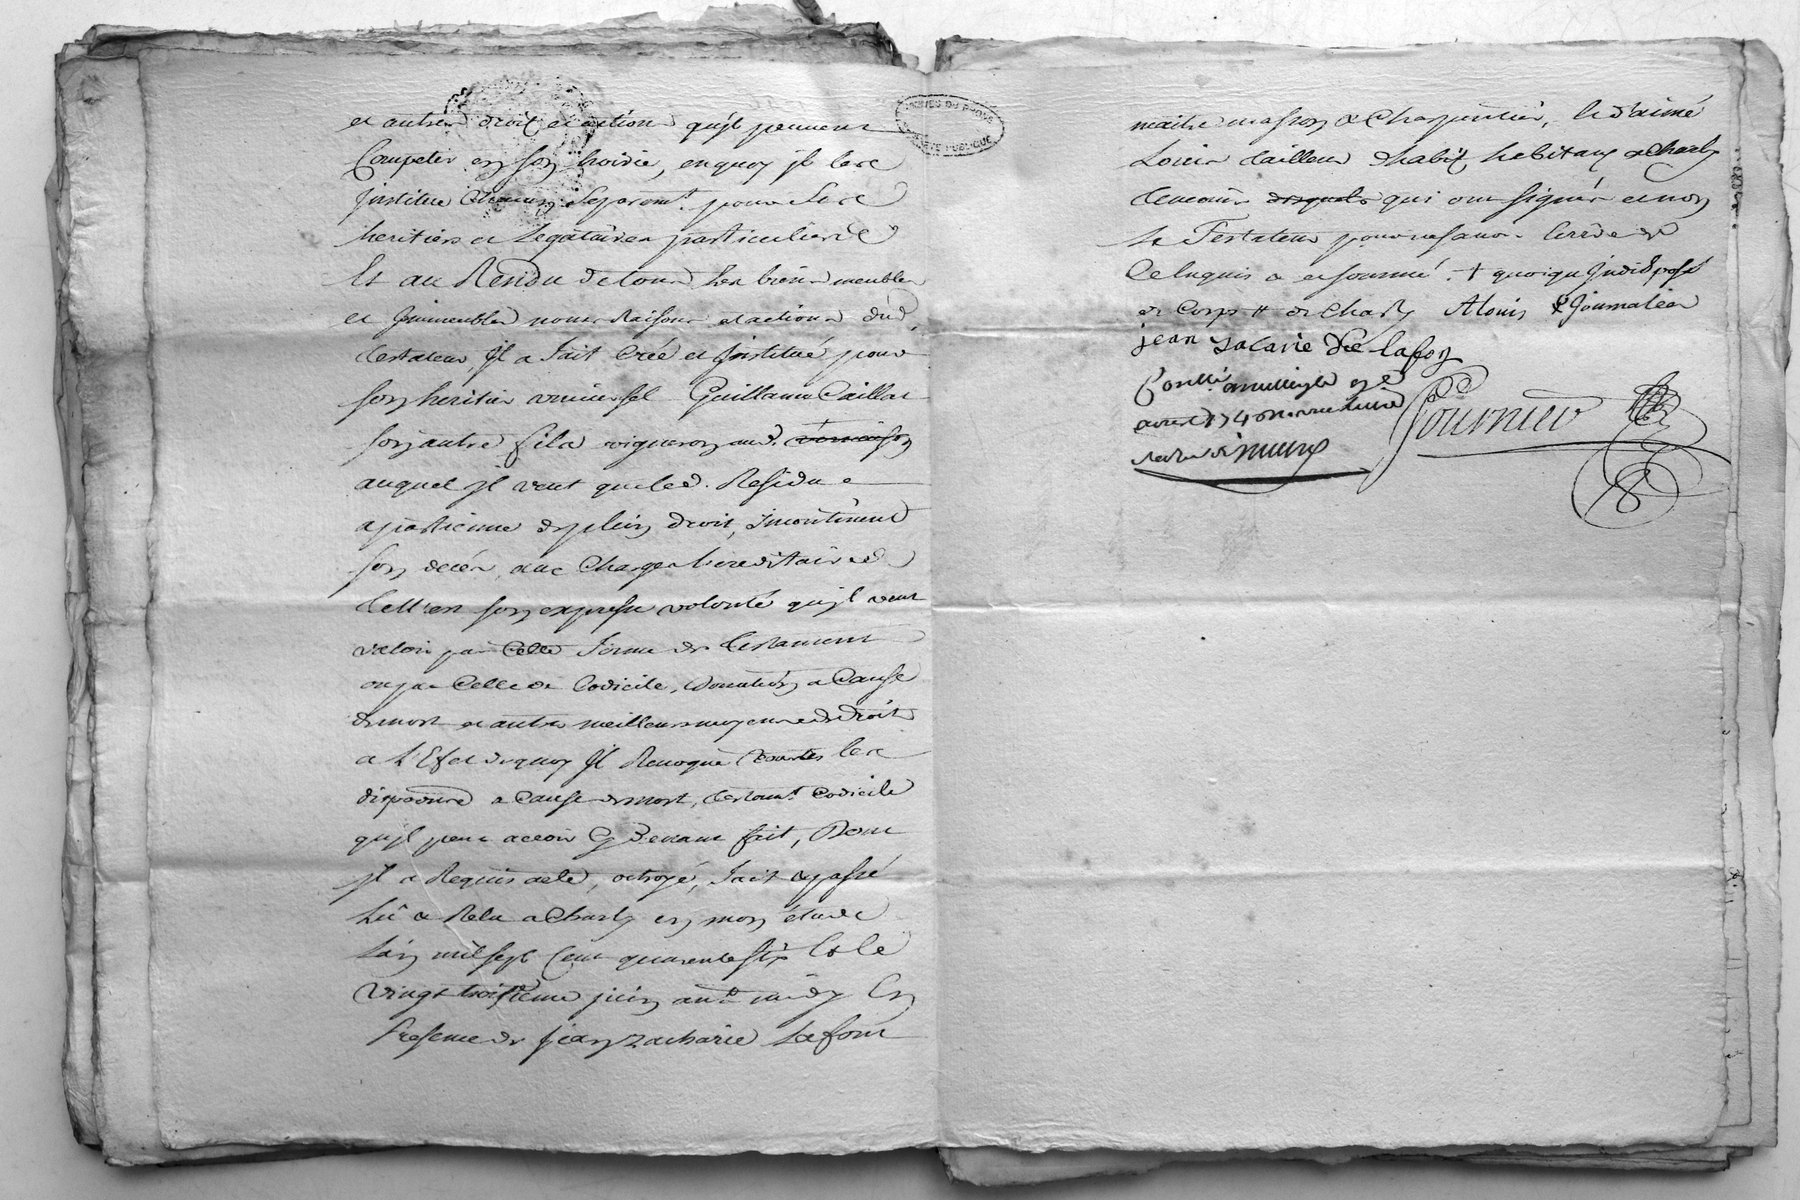 et autres droits et actions qu'il peuvent
Competer en son hoirie, enquoy il les
Institue Chacun Separemt. pour Ses
heritiers et Legataires particuliers
Et au Residu de tous Ses biens meubles
et Immeubles noms Raisons et actions dud.
testateur, Il a fait Créé et Institué pour
Son heritier universel Guillaume Caillat
Son autre fils vigneron aud.
auquel il veut que led. Residu
apartienne de plein droit, incontinent
Son deces, aux Charges hereditaires
Cest son expresse volonté qu'il veut
valoir par Cette forme de testament
ou par Celle de Codicile, Donation a Cause
de mort et autres meilleurs moyens de droit
a L'Efet de quoy Il Revoque toutes les
dispoons a Cause de mort, testamt. Codicile
qu'il peut avoir Cy Devant fait, Dont
il a Requis acte, octroyé, fait & passé
Lû & Relu a Charly en mon étude
L'an mil sept Cent quarente six & le
vingt troisieme juin avt. midy En
Presence de jean Zacharie Lafont
maitre masson & Charpentier, & d'aimé
Loren tailleur d'habit, habitans a Charly
temoins qui ont signés et non
le Testateur pour ne savoir Ecrire de
Ce Enquis & et sommé. + quoique Indisposé
de Corps # de Charly Alouis & Journalier
jean sacarie De lafon
Conllé a
Fournier